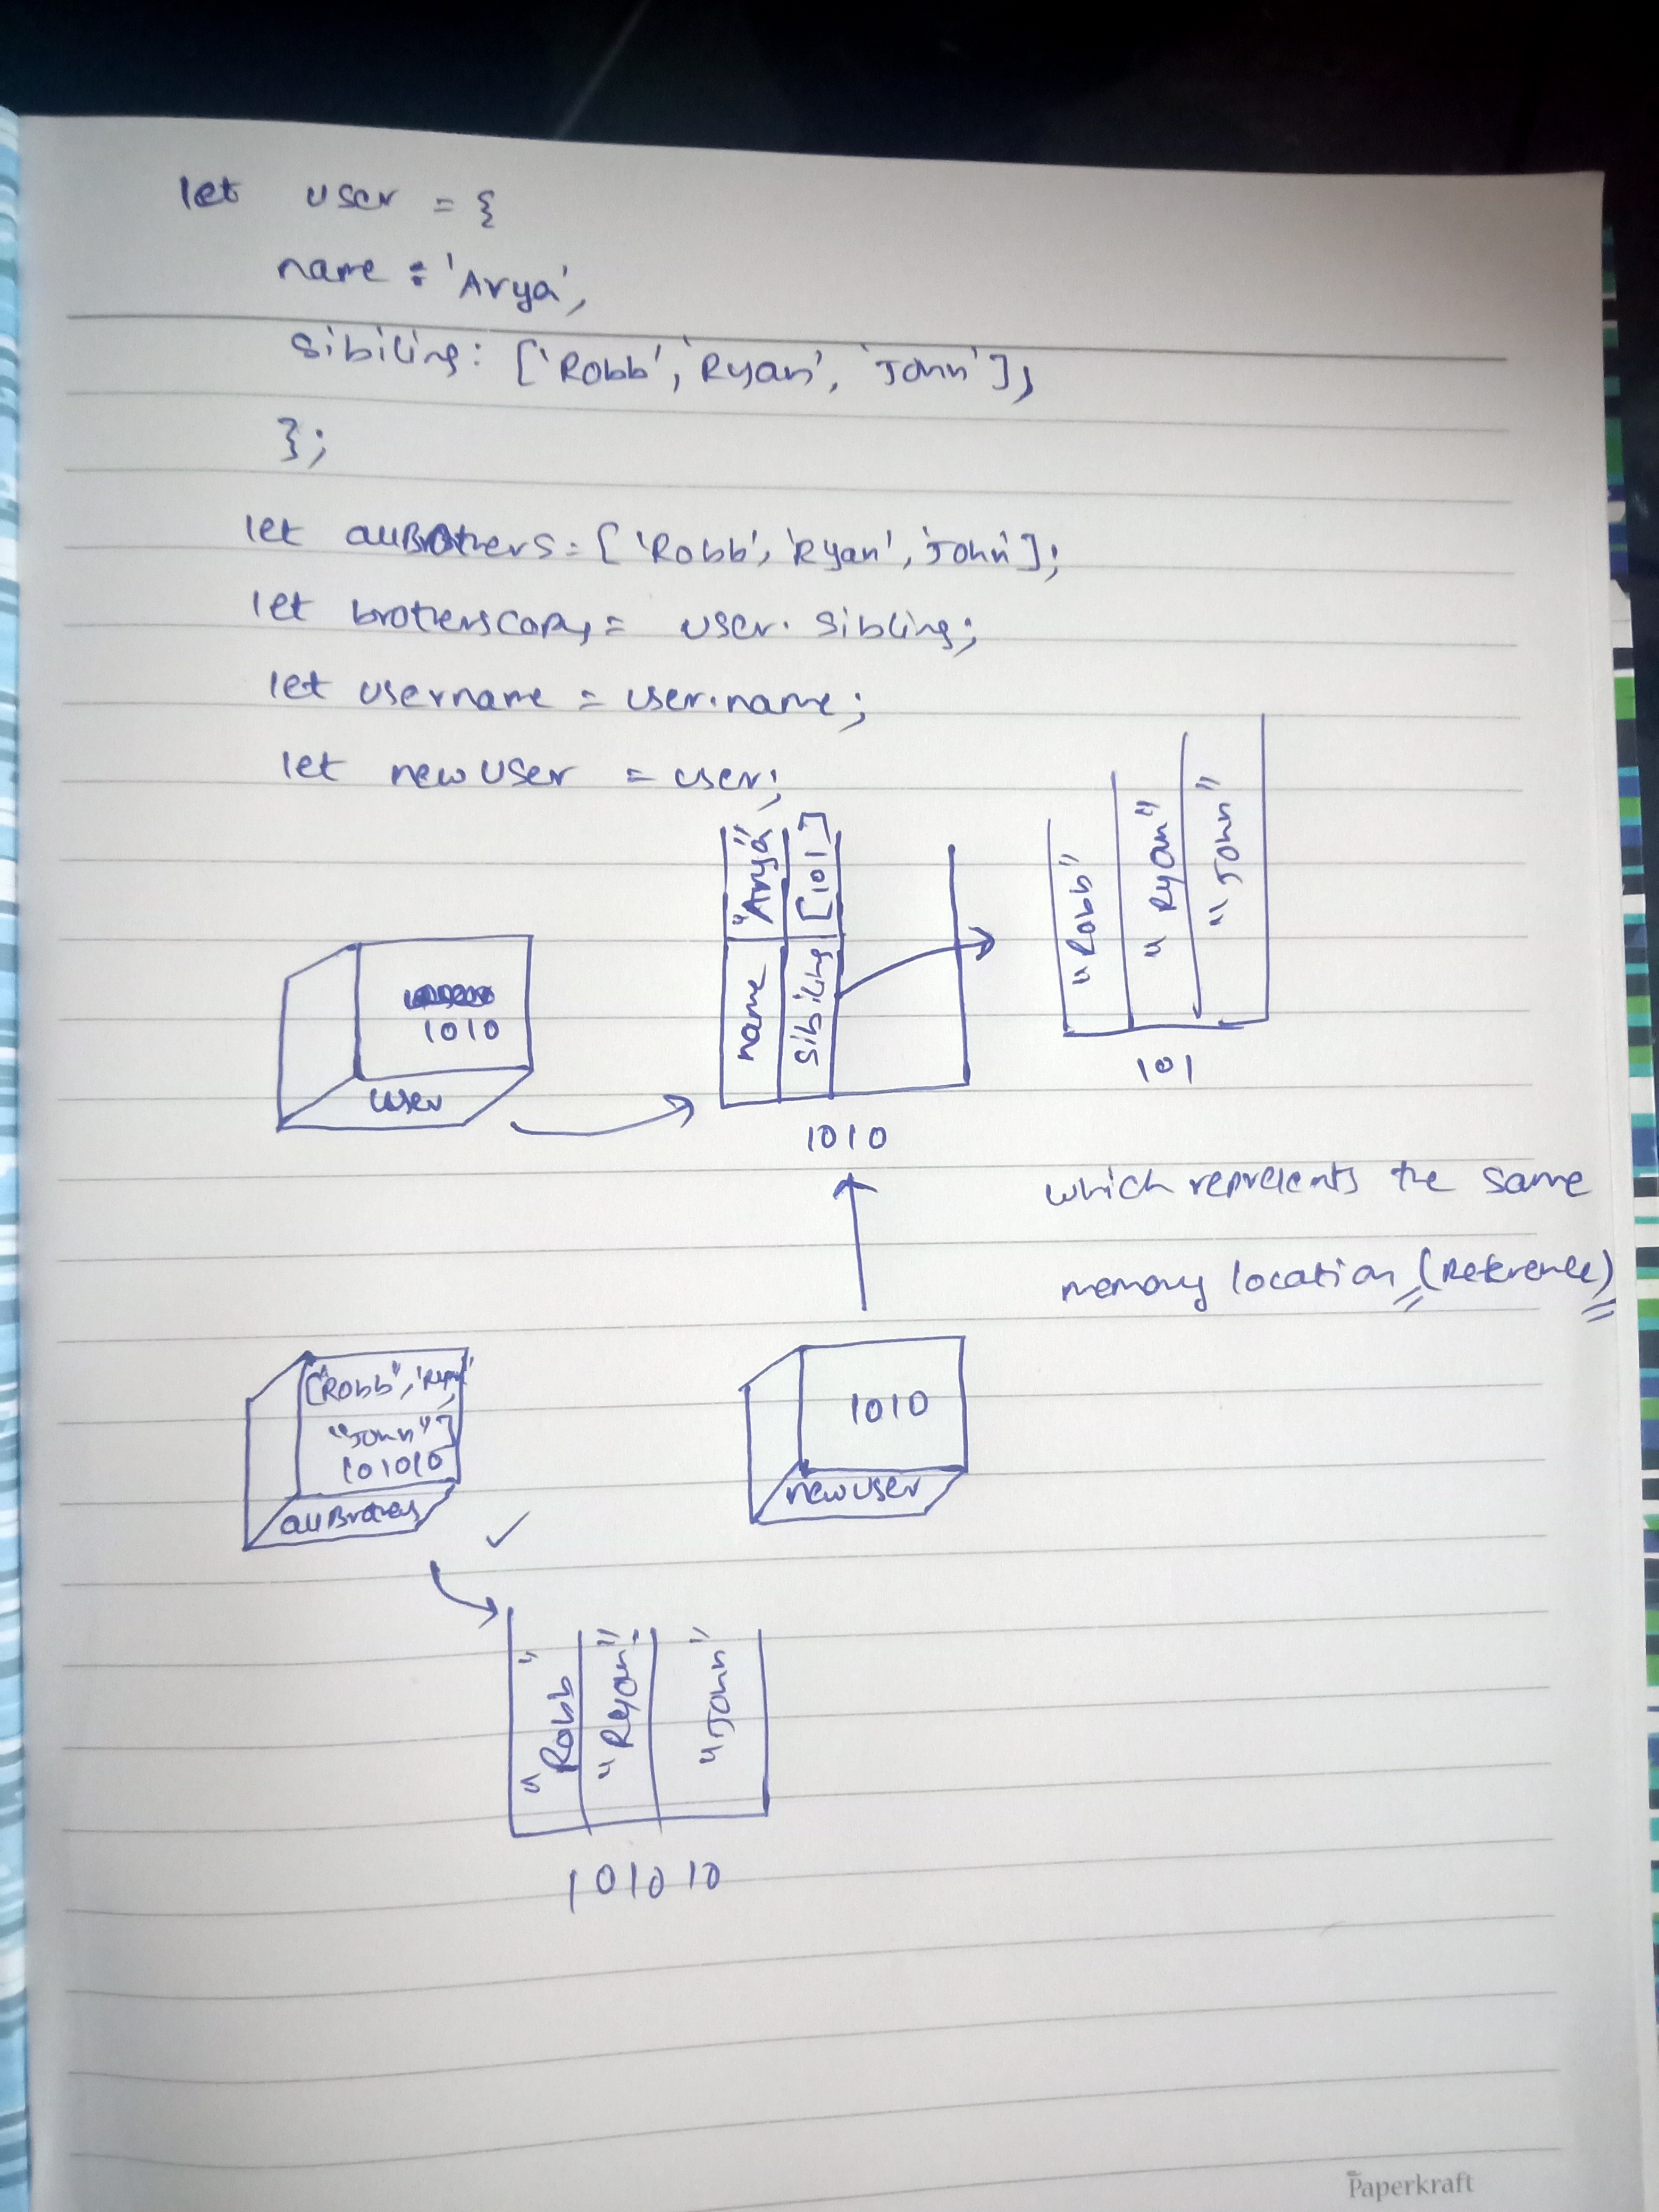 let user = {
name : 'Arya',
sibiling: ['Robb', 'Ryan', 'John'],
};
let allBrothers = ['Robb', 'Ryan', 'John'];
let brotherscopy = user. sibling;
let username = user.name;
let newUser = user;
name "Arya"
sibiling [101]
1010
"Robb" "Ryan" "John"
101
1010
user
which represents the same
memory location (Reference)
["Robb", 'Ryan'
"John"]
101010
allBrothers
1010
newUser
"Robb" "Ryan" "John"
101010
Paperkraft